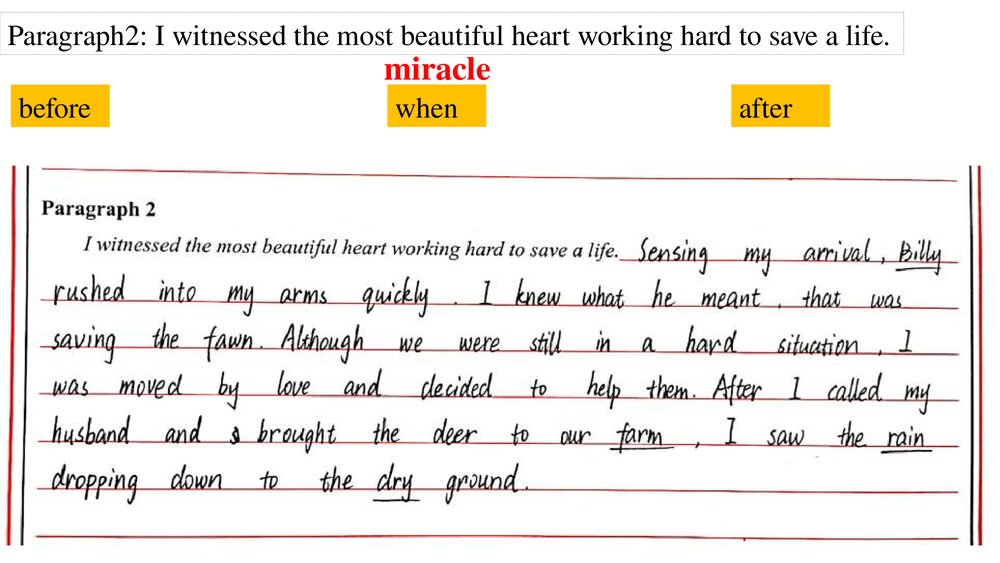 Paragraph2: I witnessed the most beautiful heart working hard to save a life.
miracle
before when after
Paragraph 2
I witnessed the most beautiful heart working hard to save a life. Sensing my arrival, Billy
rushed into my arms quickly. I knew what he meant, that was
saving the fawn. Although we were still in a hard situation, I
was moved by love and decided to help them. After I called my
husband and brought the deer to our farm, I saw the rain
dropping down to the dry ground.